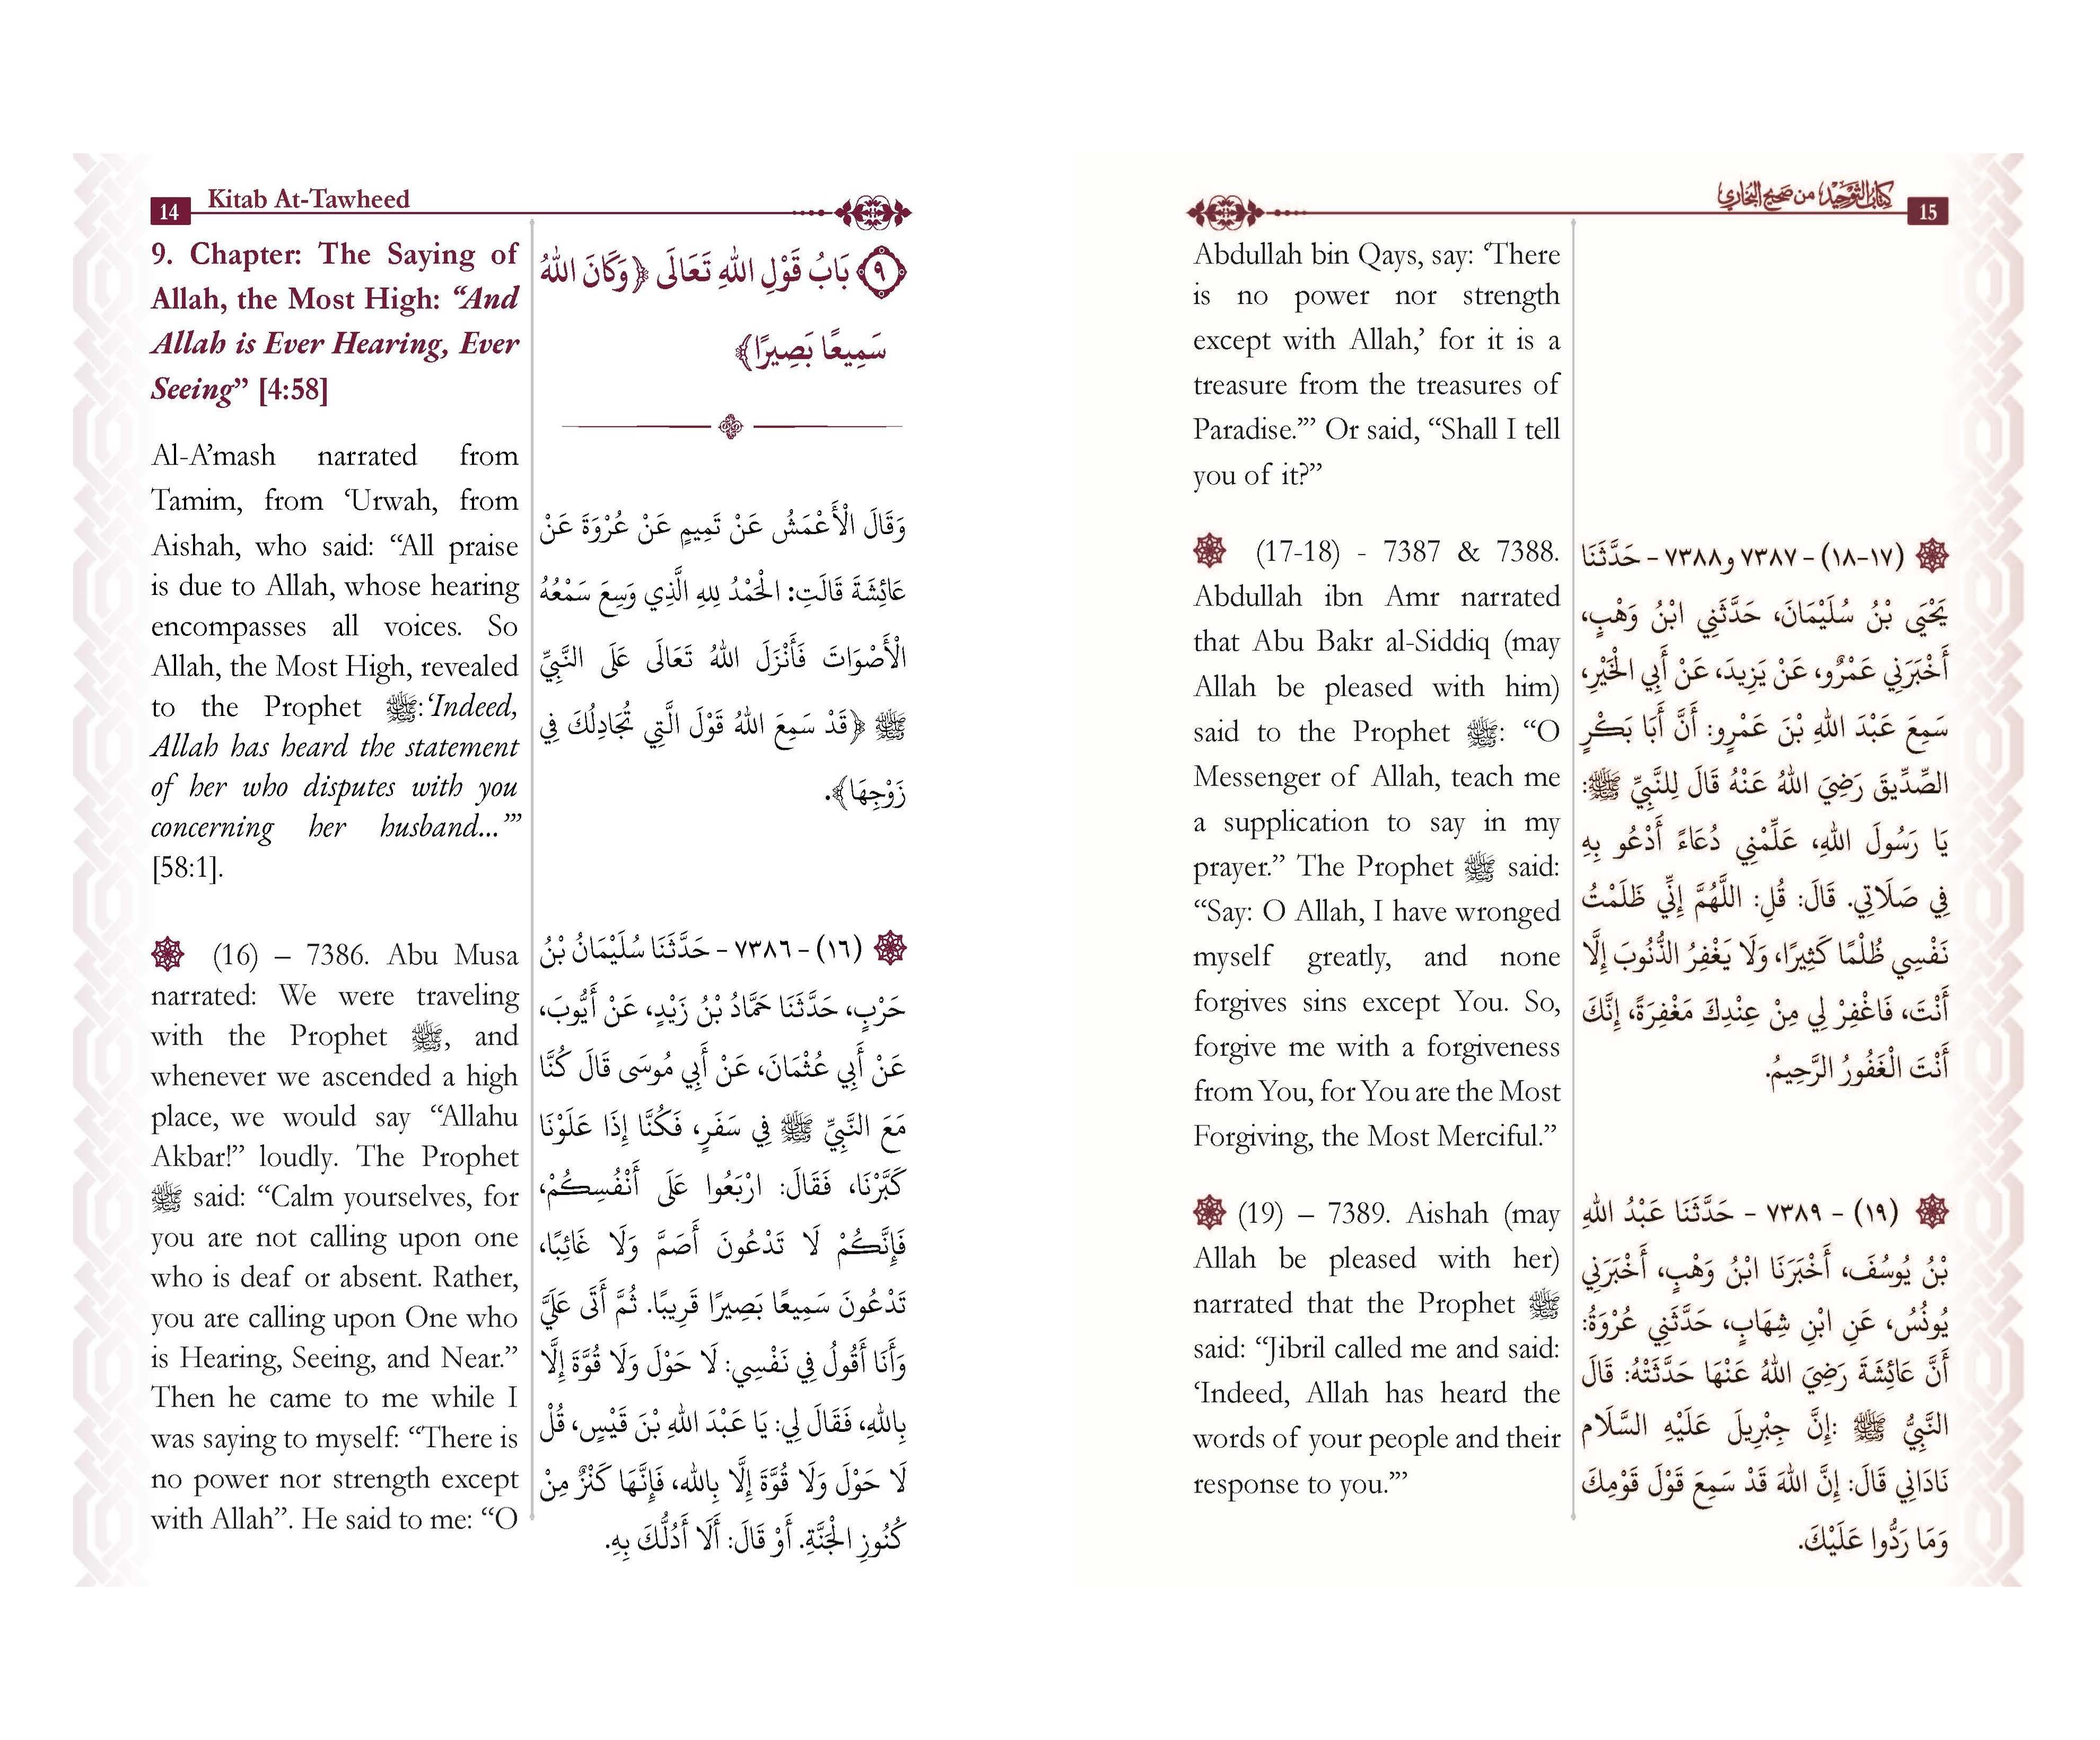 14
Kitab At-Tawheed
9. Chapter: The Saying of
Allah, the Most High: “And
Allah is Ever Hearing, Ever
Seeing” [4:58]
Al-A’mash narrated from
Tamim, from ‘Urwah, from
Aishah, who said: “All praise
is due to Allah, whose hearing
encompasses all voices. So
Allah, the Most High, revealed
to the Prophet ﷺ:‘Indeed,
Allah has heard the statement
of her who disputes with you
concerning her husband...’”
[58:1].
(16) – 7386. Abu Musa
narrated: We were traveling
with the Prophet ﷺ, and
whenever we ascended a high
place, we would say “Allahu
Akbar!” loudly. The Prophet
ﷺ said: “Calm yourselves, for
you are not calling upon one
who is deaf or absent. Rather,
you are calling upon One who
is Hearing, Seeing, and Near.”
Then he came to me while I
was saying to myself: “There is
no power nor strength except
with Allah”. He said to me: “O
٩ بَابُ قَوْلِ اللهِ تَعَالَى ﴿وَكَانَ اللهُ
سَمِيعًا بَصِيرًا﴾
وَقَالَ الْأَعْمَشُ عَنْ تَمِيمٍ عَنْ عُرْوَةَ عَنْ
عَائِشَةَ قَالَتِ: الْحَمْدُ لِلهِ الَّذِي وَسِعَ سَمْعُهُ
الْأَصْوَاتَ فَأَنْزَلَ اللهُ تَعَالَى عَلَى النَّبِيِّ
ﷺ ﴿قَدْ سَمِعَ اللهُ قَوْلَ الَّتِي تُجَادِلُكَ فِي
زَوْجِهَا﴾.
(١٦) - ٧٣٨٦ - حَدَّثَنَا سُلَيْمَانُ بْنُ
حَرْبٍ، حَدَّثَنَا حَمَّادُ بْنُ زَيْدٍ، عَنْ أَيُّوبَ،
عَنْ أَبِي عُثْمَانَ، عَنْ أَبِي مُوسَى قَالَ كُنَّا
مَعَ النَّبِيِّ ﷺ فِي سَفَرٍ، فَكُنَّا إِذَا عَلَوْنَا
كَبَّرْنَا، فَقَالَ: ارْبَعُوا عَلَى أَنْفُسِكُمْ،
فَإِنَّكُمْ لَا تَدْعُونَ أَصَمَّ وَلَا غَائِبًا،
تَدْعُونَ سَمِيعًا بَصِيرًا قَرِيبًا. ثُمَّ أَتَى عَلَيَّ
وَأَنَا أَقُولُ فِي نَفْسِي: لَا حَوْلَ وَلَا قُوَّةَ إِلَّا
بِاللهِ، فَقَالَ لِي: يَا عَبْدَ اللهِ بْنَ قَيْسٍ، قُلْ
لَا حَوْلَ وَلَا قُوَّةَ إِلَّا بِالله، فَإِنَّهَا كَنْزٌ مِنْ
كُنُوزِ الْجَنَّةِ. أَوْ قَالَ: أَلَا أَدُلُّكَ بِهِ.
كتاب التوحيد من صحيح البخاري
15
Abdullah bin Qays, say: ‘There
is no power nor strength
except with Allah,’ for it is a
treasure from the treasures of
Paradise.’” Or said, “Shall I tell
you of it?”
(17-18) - 7387 & 7388.
Abdullah ibn Amr narrated
that Abu Bakr al-Siddiq (may
Allah be pleased with him)
said to the Prophet ﷺ: “O
Messenger of Allah, teach me
a supplication to say in my
prayer.” The Prophet ﷺ said:
“Say: O Allah, I have wronged
myself greatly, and none
forgives sins except You. So,
forgive me with a forgiveness
from You, for You are the Most
Forgiving, the Most Merciful.”
(19) – 7389. Aishah (may
Allah be pleased with her)
narrated that the Prophet ﷺ
said: “Jibril called me and said:
‘Indeed, Allah has heard the
words of your people and their
response to you.’”
(١٧-١٨) - ٧٣٨٧ و٧٣٨٨ - حَدَّثَنَا
يَحْيَى بْنُ سُلَيْمَانَ، حَدَّثَنِي ابْنُ وَهْبٍ،
أَخْبَرَنِي عَمْرٌو، عَنْ يَزِيدَ، عَنْ أَبِي الْخَيْرِ،
سَمِعَ عَبْدَ اللهِ بْنَ عَمْرٍو: أَنَّ أَبَا بَكْرٍ
الصِّدِّيقَ رَضِيَ اللهُ عَنْهُ قَالَ لِلنَّبِيِّ ﷺ:
يَا رَسُولَ اللهِ، عَلِّمْنِي دُعَاءً أَدْعُو بِهِ
فِي صَلَاتِي. قَالَ: قُلِ: اللَّهُمَّ إِنِّي ظَلَمْتُ
نَفْسِي ظُلْمًا كَثِيرًا، وَلَا يَغْفِرُ الذُّنُوبَ إِلَّا
أَنْتَ، فَاغْفِرْ لِي مِنْ عِنْدِكَ مَغْفِرَةً، إِنَّكَ
أَنْتَ الْغَفُورُ الرَّحِيمُ.
(١٩) - ٧٣٨٩ - حَدَّثَنَا عَبْدُ اللهِ
بْنُ يُوسُفَ، أَخْبَرَنَا ابْنُ وَهْبٍ، أَخْبَرَنِي
يُونُسُ، عَنِ ابْنِ شِهَابٍ، حَدَّثَنِي عُرْوَةُ:
أَنَّ عَائِشَةَ رَضِيَ اللهُ عَنْهَا حَدَّثَتْهُ: قَالَ
النَّبِيُّ ﷺ :إِنَّ جِبْرِيلَ عَلَيْهِ السَّلَام
نَادَانِي قَالَ: إِنَّ اللهَ قَدْ سَمِعَ قَوْلَ قَوْمِكَ
وَمَا رَدُّوا عَلَيْكَ.